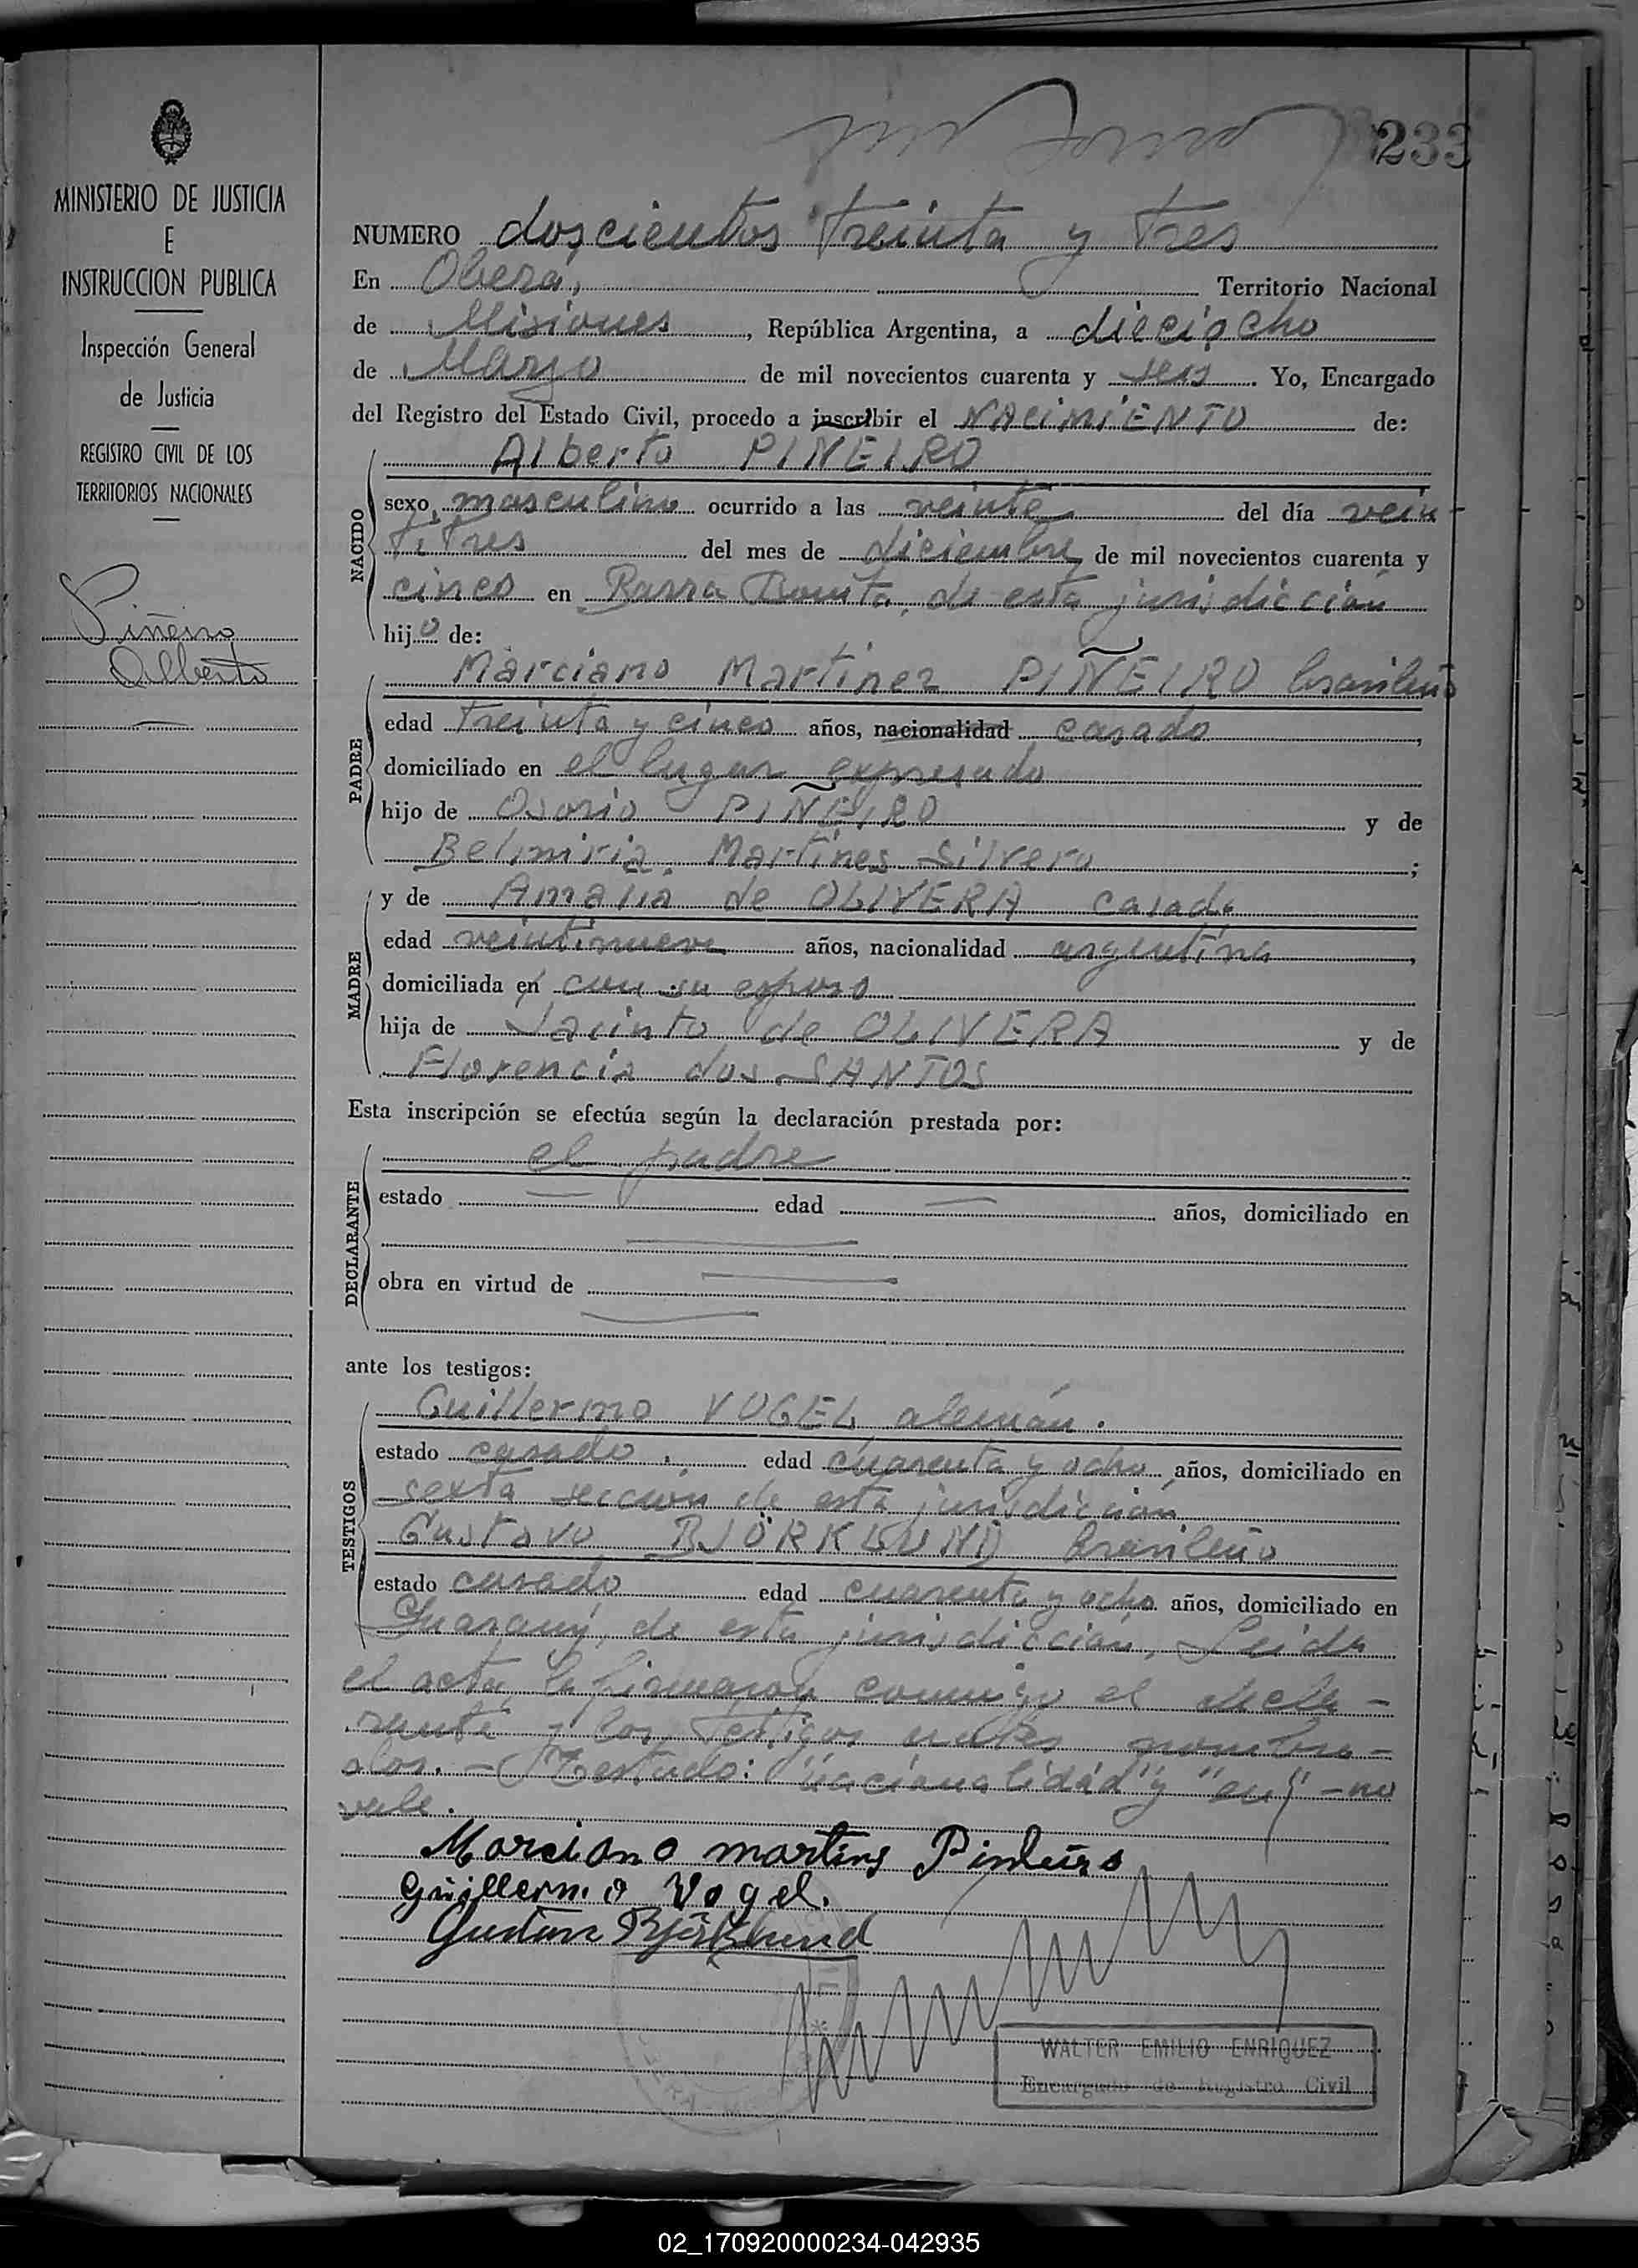 233
MINISTERIO DE JUSTICIA
E
INSTRUCCION PUBLICA
Inspección General
de Justicia
REGISTRO CIVIL DE LOS
TERRITORIOS NACIONALES
Piñeiro
Alberto
NUMERO doscientos treinta y tres
En Oberá, Territorio Nacional
de Misiones, República Argentina, a dieciocho
de Marzo de mil novecientos cuarenta y seis. Yo, Encargado
del Registro del Estado Civil, procedo a inscribir el NACIMIENTO de:
Alberto PIÑEIRO
NACIDO
sexo masculino ocurrido a las veinte del día vein-
titres del mes de diciembre de mil novecientos cuarenta y
cinco en Barra Bonita, de esta jurisdicción
hijo de:
PADRE
Marciano Martinez PIÑEIRO brasileño
edad treinta y cinco años, nacionalidad casado,
domiciliado en el lugar expresado
hijo de Osorio PIÑEIRO y de
Belmiria Martines Silvera;
MADRE
y de Amalia de OLIVERA casada
edad veintinueve años, nacionalidad argentina,
domiciliada en con su esposo
hija de Jacinto de OLIVERA y de
Florencia dos SANTOS
Esta inscripción se efectúa según la declaración prestada por:
DECLARANTE
el padre
estado — edad — años, domiciliado en
obra en virtud de
ante los testigos:
TESTIGOS
Guillermo VOGEL alemán.
estado casado, edad cuarenta y ocho años, domiciliado en
sexta sección de esta jurisdicción
Gustavo BJÖRKLUND brasileño
estado casado edad cuarenta y ocho años, domiciliado en
Guarany, de esta jurisdicción, Leida
el acta, la firmaron conmigo el decla-
rante y los testigos antes nombra-
dos. - Testado: "nacionalidad" y "en" - no
vale.
Marciano martins Pinheiro
Guillermo Vogel.
Gustav Björklund
WALTER EMILIO ENRIQUEZ
Encargado de Registro Civil
02_170920000234-042935